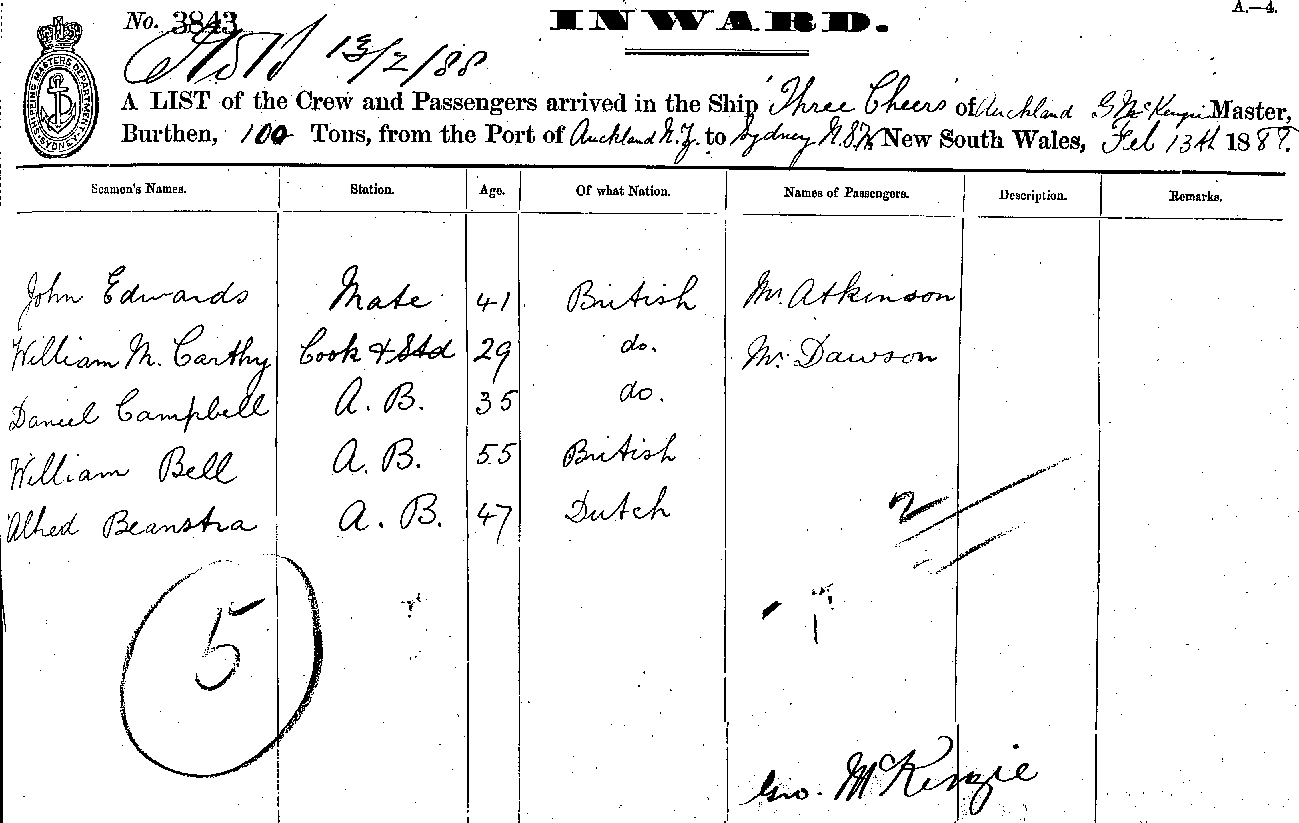 A.—4.
No. 3843
INWARD.
13/2/88
A LIST of the Crew and Passengers arrived in the Ship 'Three Cheers' of Auckland G McKenzie Master,
Burthen, 100 Tons, from the Port of Auckland N.Z. to Sydney N.S.W New South Wales, Feb 13th 188
SHIPPING MASTERS DEPARTMENT SYDNEY
Seamen's Names. Station. Age. Of what Nation. Names of Passengers. Description. Remarks.
John Edwards Mate 41 British Mr. Atkinson
William M. Carthy Cook & Std 29 do. Mr. Dawson
Daniel Campbell A. B. 35 do.
William Bell A. B. 55 British
Alfred Beanstra A. B. 47 Dutch
2
5
Geo. McKenzie